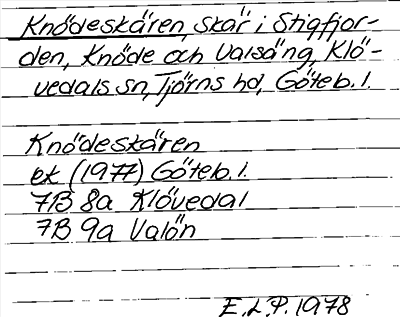 Knödeskären, skär i Stigfjor-
den, Knöde och Valsäng, Klö-
vedals sn, Tjörns hd, Göteb. l.
Knödeskären
ek (1977) Göteb. l.
7B 8a Klövedal
7B 9a Valön
E.L.P. 1978